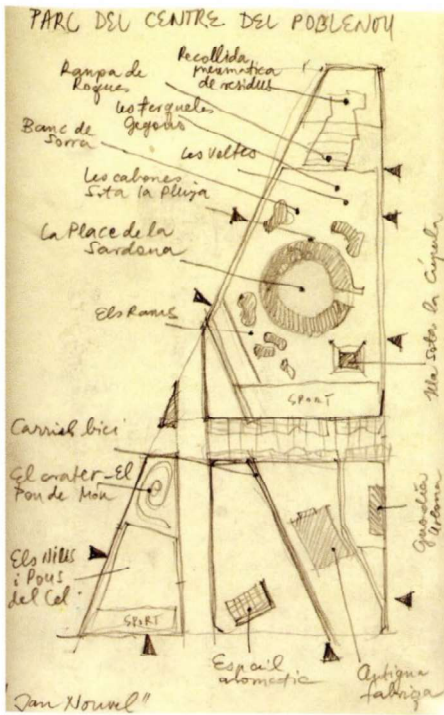 PARC DEL CENTRE DEL POBLENOU
Recollida
pneumatica
de residus
Rampa de
Roques
Les ferqueles
Gegants
Banc de
Sorra
Les Voltes
Les cabanes
Sota la Pluja
La Place de la
Sardana
Els Rams
Illa Sota la Cúpula
SPORT
Carril bici
El crater - El
Pou de Mon
Guardia
urbana
Els Nius
i Pous
del Cel
SPORT
Espacil
aromatic
Antigua
fabriga
"Jan Nouvel"